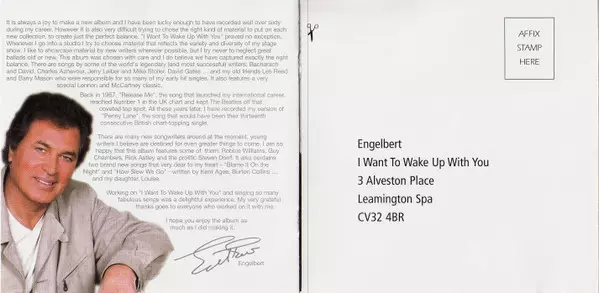 It is always a joy to make a new album and I have been lucky enough to have recorded well over sixty
during my career. However it is also very difficult trying to chose the right kind of material to put on each
new collection, to create just the perfect balance. "I Want To Wake Up With You" proved no exception.
Whenever I go into a studio I try to choose material that reflects the variety and diversity of my stage
show. I like to showcase material by new writers wherever possible, but I try never to neglect great
ballads old or new. This album was chosen with care and I do believe we have captured exactly the right
balance. There are songs by some of the world's legendary (and most successful) writers: Bacharach
and David, Charles Aznavour, Jerry Leiber and Mike Stoller, David Gates ... and my old friends Les Reed
and Barry Mason who were responsible for so many of my early hit singles. It also features a very
special Lennon and McCartney classic.
Back in 1967, "Release Me", the song that launched my international career,
reached Number 1 in the UK chart and kept The Beatles off that
coveted top spot. All those years later, I have recorded my version of
"Penny Lane", the song that would have been their thirteenth
consecutive British chart-topping single.
There are many new songwriters around at the moment, young
writers I believe are destined for even greater things to come. I am so
happy that this album features some of them. Robbie Williams, Guy
Chambers, Rick Astley and the prolific Steven Dorff. It also contains
two brand new songs that very dear to my heart - "Blame It On the
Night" and "How Slow We Go" - written by Kent Agee, Burton Collins ...
and my daughter, Louise.
Working on "I Want To Wake Up With You" and singing so many
fabulous songs was a delightful experience. My very grateful
thanks goes to everyone who worked on it with me.
I hope you enjoy the album as
much as I did making it.
Engelbert
AFFIX
STAMP
HERE
Engelbert
I Want To Wake Up With You
3 Alveston Place
Leamington Spa
CV32 4BR